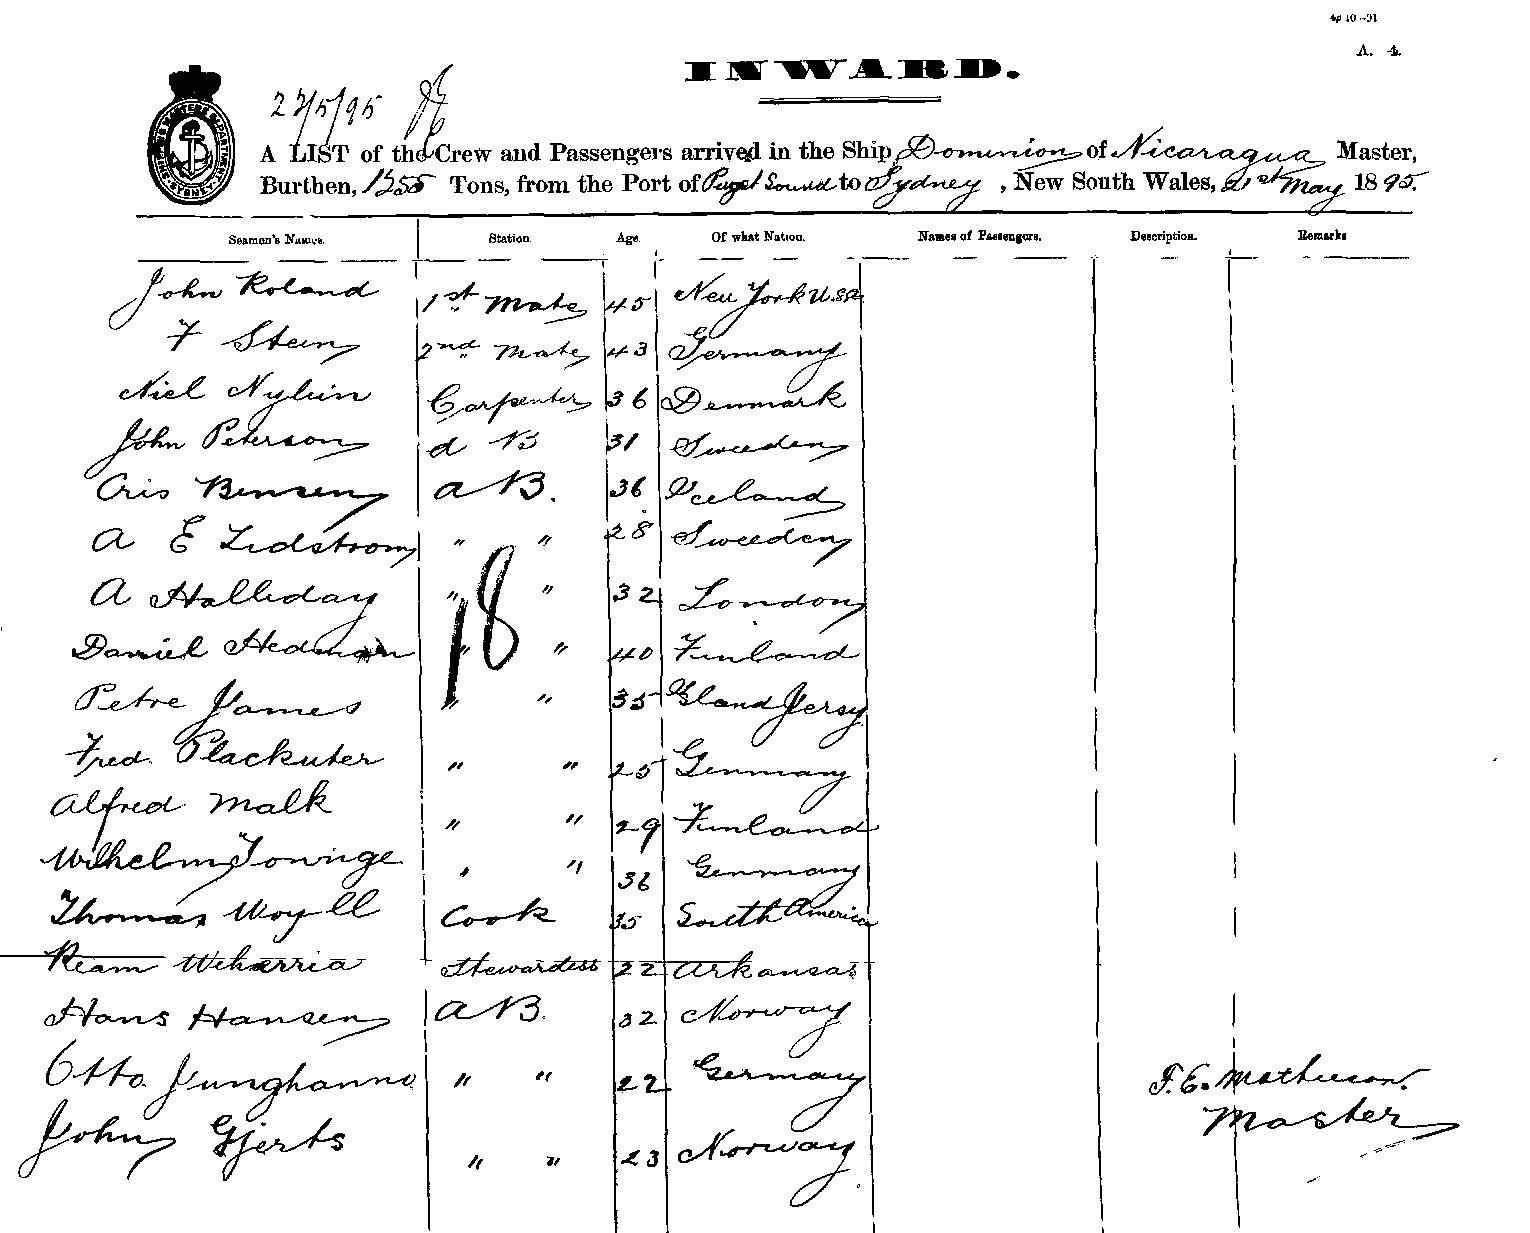 4p 10-91
A. 4.
INWARD.
22/5/95
A LIST of the Crew and Passengers arrived in the Ship Dominion of Nicaragua Master,
Burthen, 1255 Tons, from the Port of Puget Sound to Sydney, New South Wales, 21st May 1895.
Seamen's Names. Station. Age. Of what Nation. Names of Passengers. Description. Remarks
John Roland 1st Mate 45 New York U.S.A.
F Stein 2nd Mate 43 Germany
Niel Nylein Carpenter 36 Denmark
John Peterson a B 31 Sweeden
Cris Bensen a B. 36 Iceland
A E Lidstrom " " 28 Sweeden
A Halliday " " 32 London
18
Daniel Hedman " " 40 Finland
Petre James " " 35 Island Jersy
Fred. Plackuter " " 25 Germany
Alfred Malk " " 29 Finland
Wilhelm " " 36 Germany
Thomas Woyll Cook 35 South America
Ream Weharria Stewardess 22 Arkansas
Hans Hansen a B. 32 Norway
Otto Junghanns " " 22 Germany
John Gjerts " " 23 Norway
F. E. Matheson.
Master